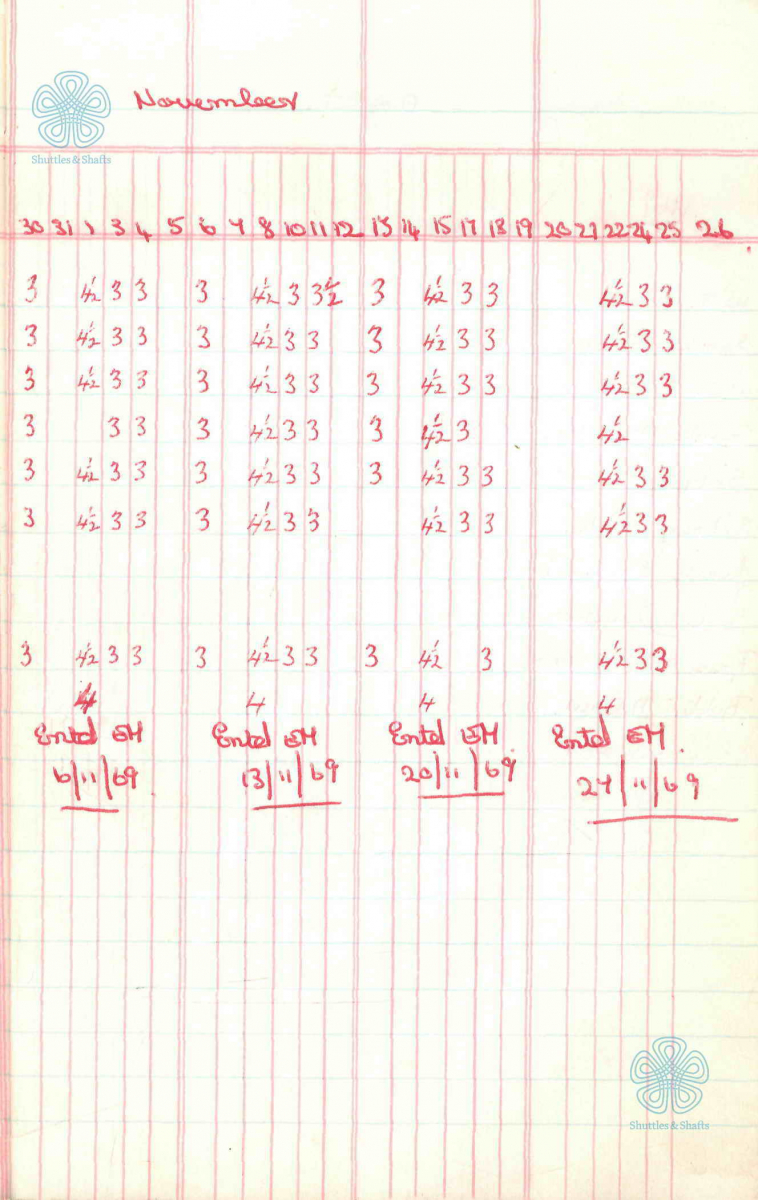 November
Shuttles & Shafts
30 31 1 3 4 5 6 7 8 10 11 12 13 14 15 17 18 19 20 21 22 24 25 26
3 4½ 3 3 3 4½ 3 3½ 3 4½ 3 3 4½ 3 3
3 4½ 3 3 3 4½ 3 3 3 4½ 3 3 4½ 3 3
3 4½ 3 3 3 4½ 3 3 3 4½ 3 3 4½ 3 3
3 3 3 3 4½ 3 3 3 4½ 3 4½
3 4½ 3 3 3 4½ 3 3 3 4½ 3 3 4½ 3 3
3 4½ 3 3 3 4½ 3 3 4½ 3 3 4½ 3 3
3 4½ 3 3 3 4½ 3 3 3 4½ 3 4½ 3 3
4 4 4 4
Entd EH Entd EH Entd EH Entd EH.
6/11/69 13/11/69 20/11/69 27/11/69
Shuttles & Shafts